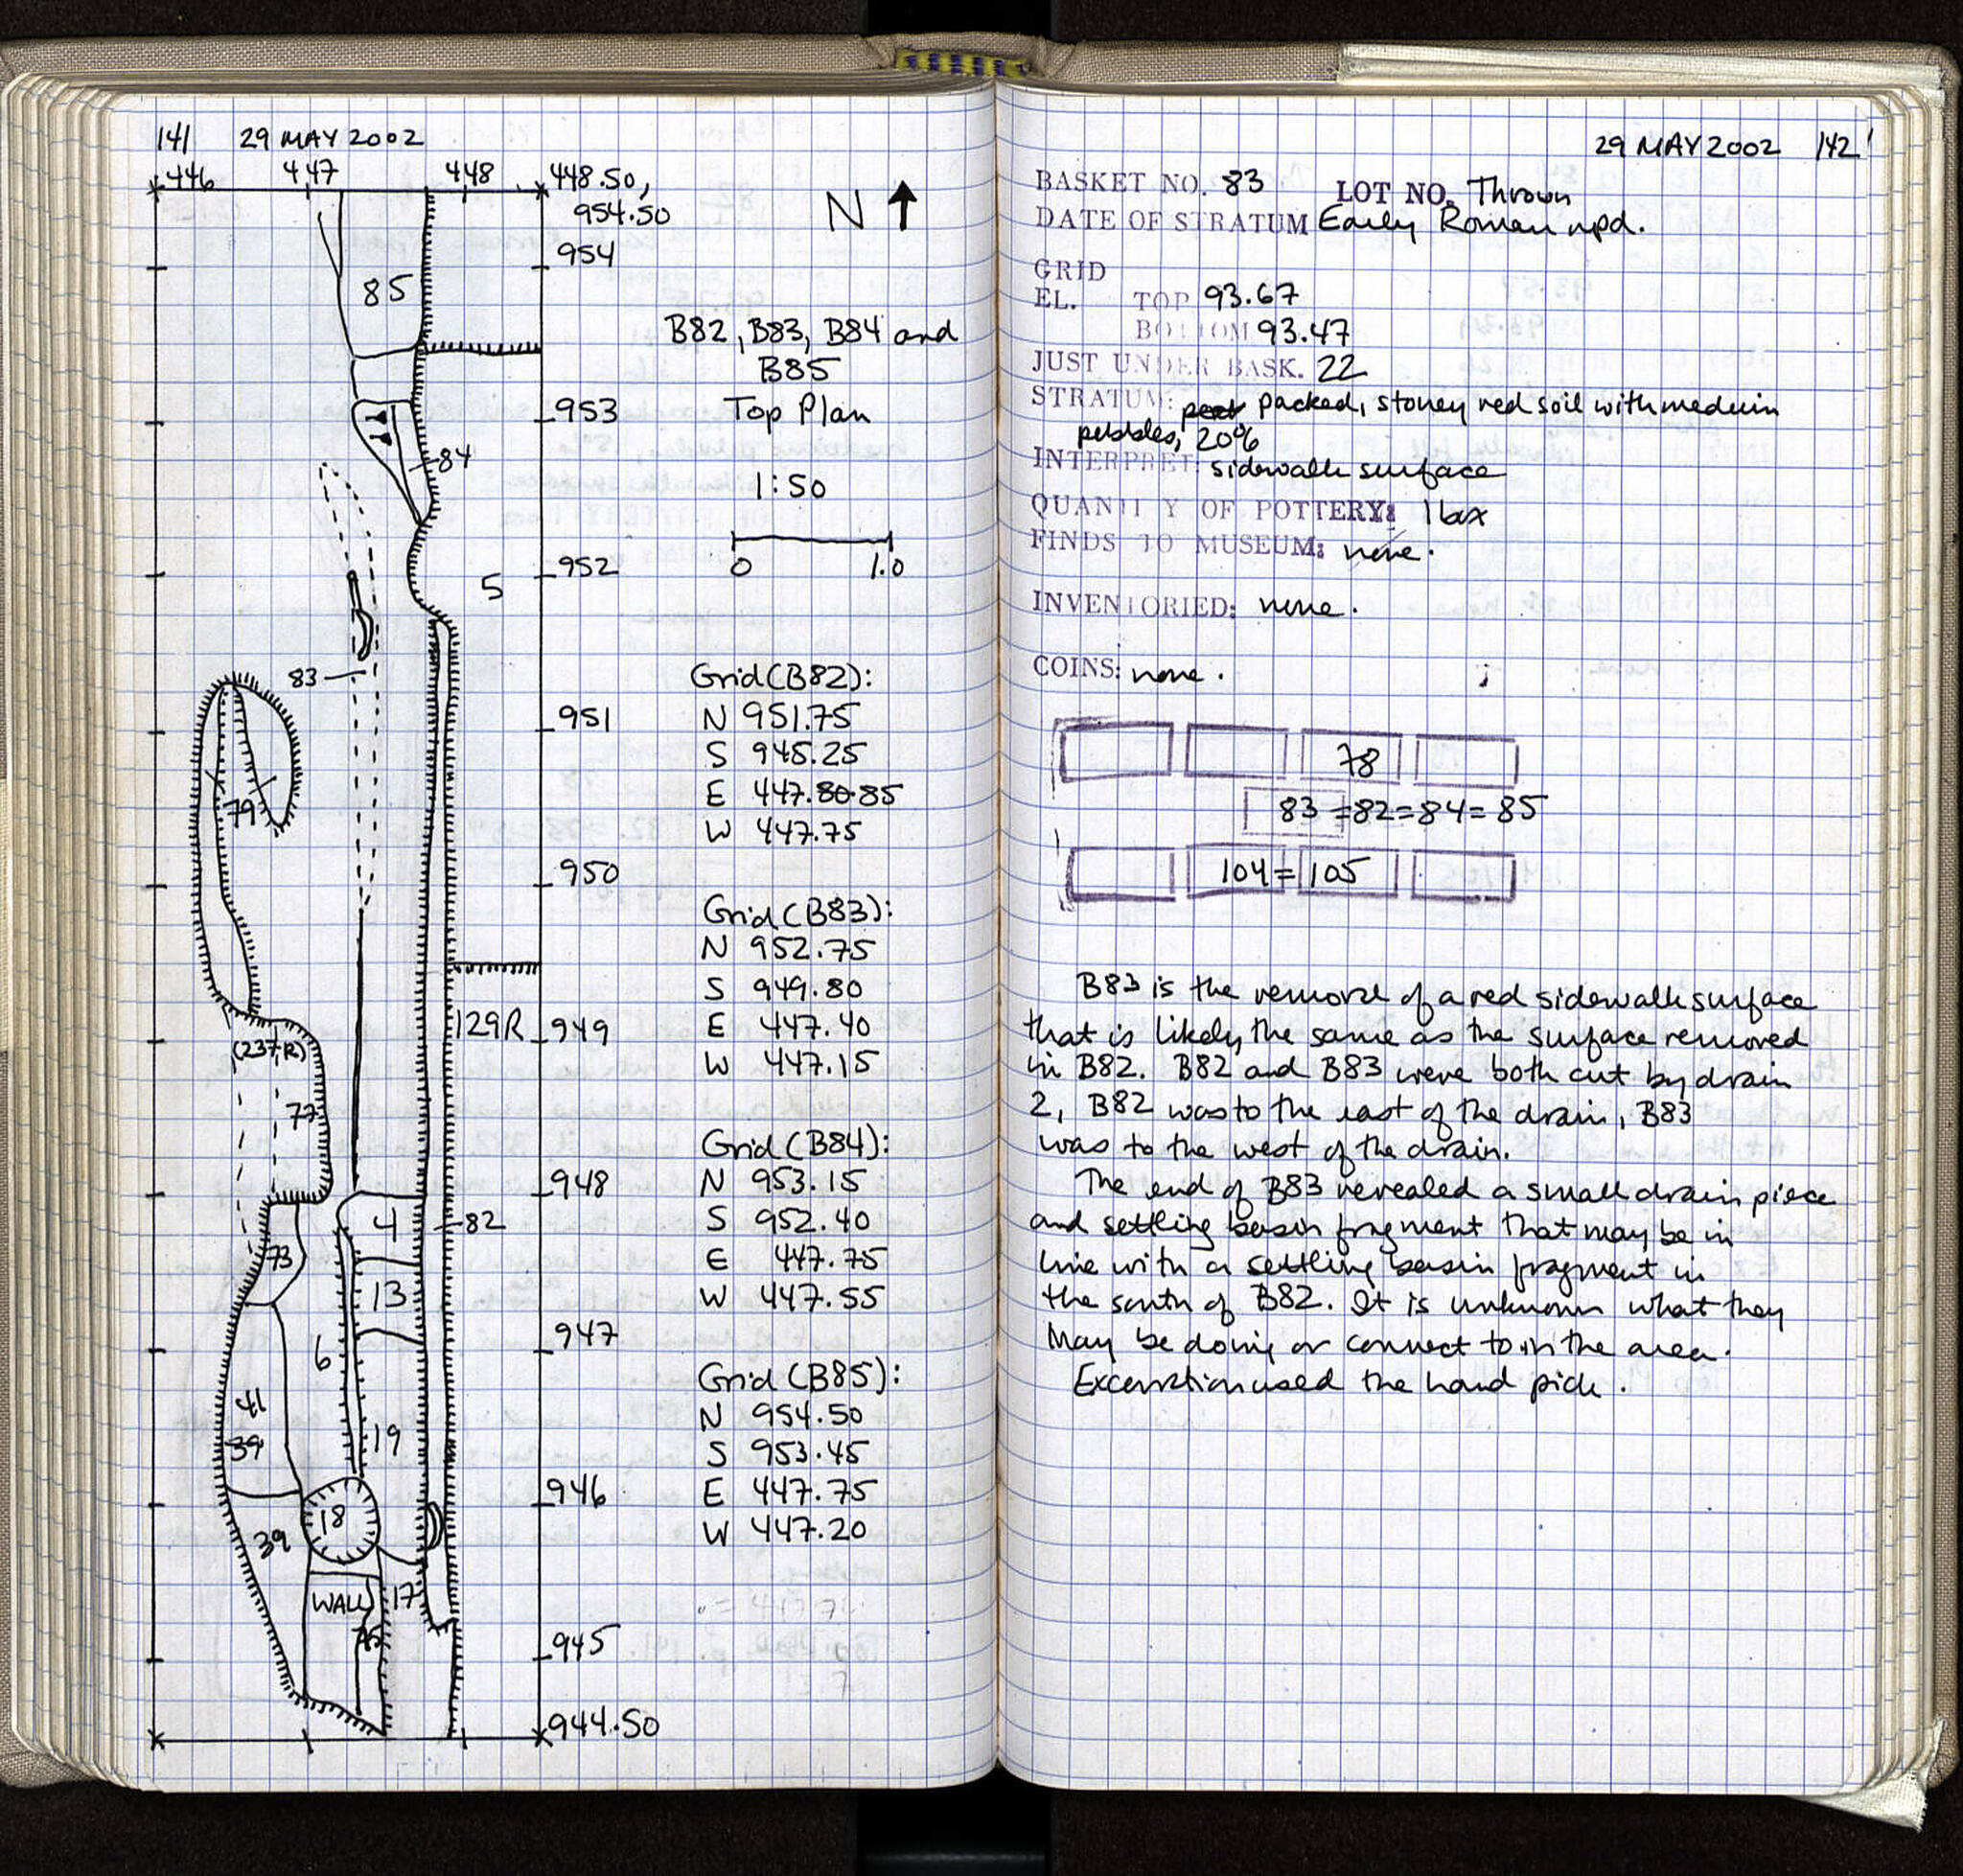 141 29 MAY 2002
446 447 448 448.50,
954.50
N
954
85
B82, B83, B84 and
B85
953
Top Plan
84
1:50
952
0 1.0
5
83
Grid (B82):
951
N 951.75
S 945.25
E 447.80.85
79
W 447.75
950
Grid (B83):
N 952.75
S 949.80
129R 949
E 447.40
(237R)
W 447.15
77
Grid (B84):
948
N 953.15
4 82
S 952.40
73
E 447.75
13
W 447.55
947
6
Grid (B85):
41
N 954.50
39 19
S 953.45
946
E 447.75
18
39
W 447.20
WALL 17
A5
945
944.50
29 MAY 2002 142
BASKET NO. 83 LOT NO. Thrown
DATE OF STRATUM Early Roman npd.
GRID
EL. TOP 93.67
BOTTOM 93.47
JUST UNDER BASK. 22
STRATUM: packed, stoney red soil with medium
pebbles, 20%
INTERPRET: sidewalk surface
QUANTITY OF POTTERY: 1 box
FINDS TO MUSEUM: none.
INVENTORIED: none.
COINS: none.
78
83 = 82 = 84 = 85
104 = 105
B83 is the removal of a red sidewalk surface
that is likely the same as the surface removed
in B82. B82 and B83 were both cut by drain
2, B82 was to the east of the drain, B83
was to the west of the drain.
The end of B83 revealed a small drain piece
and settling basin fragment that may be in
line with a settling basin fragment in
the south of B82. It is unknown what they
may be doing or connect to in the area.
Excavation used the hand pick.